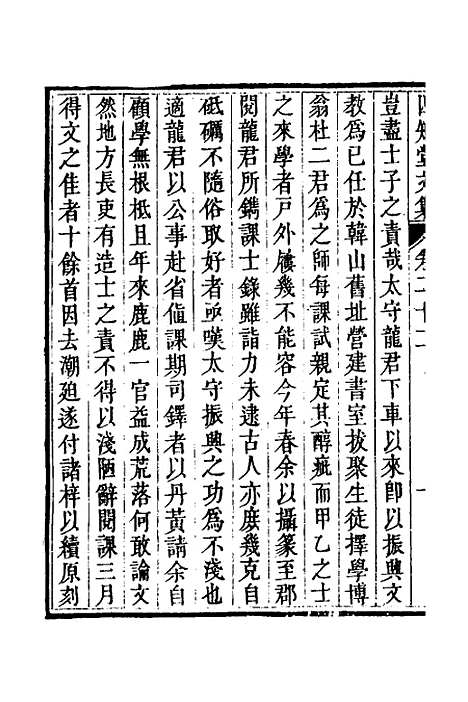 四知堂文集 卷二十二
豈盡士子之責哉太守龍君下車以來卽以振興文
教爲已任於韓山舊址營建書室拔聚生徒擇學博
翁杜二君爲之師每課試親定其醇疵而甲乙之士
之來學者戶外屨幾不能容今年春余以攝篆至郡
閱龍君所鐫課士錄雖詣力未逮古人亦庶幾克自
砥礪不隨俗取好者亟嘆太守振興之功爲不淺也
適龍君以公事赴省値課期司鐸者以丹黃請余自
顧學無根柢且年來鹿鹿一官益成荒落何敢論文
然地方長吏有造士之責不得以淺陋辭閱課三月
得文之佳者十餘首因去潮廹遂付諸梓以續原刻